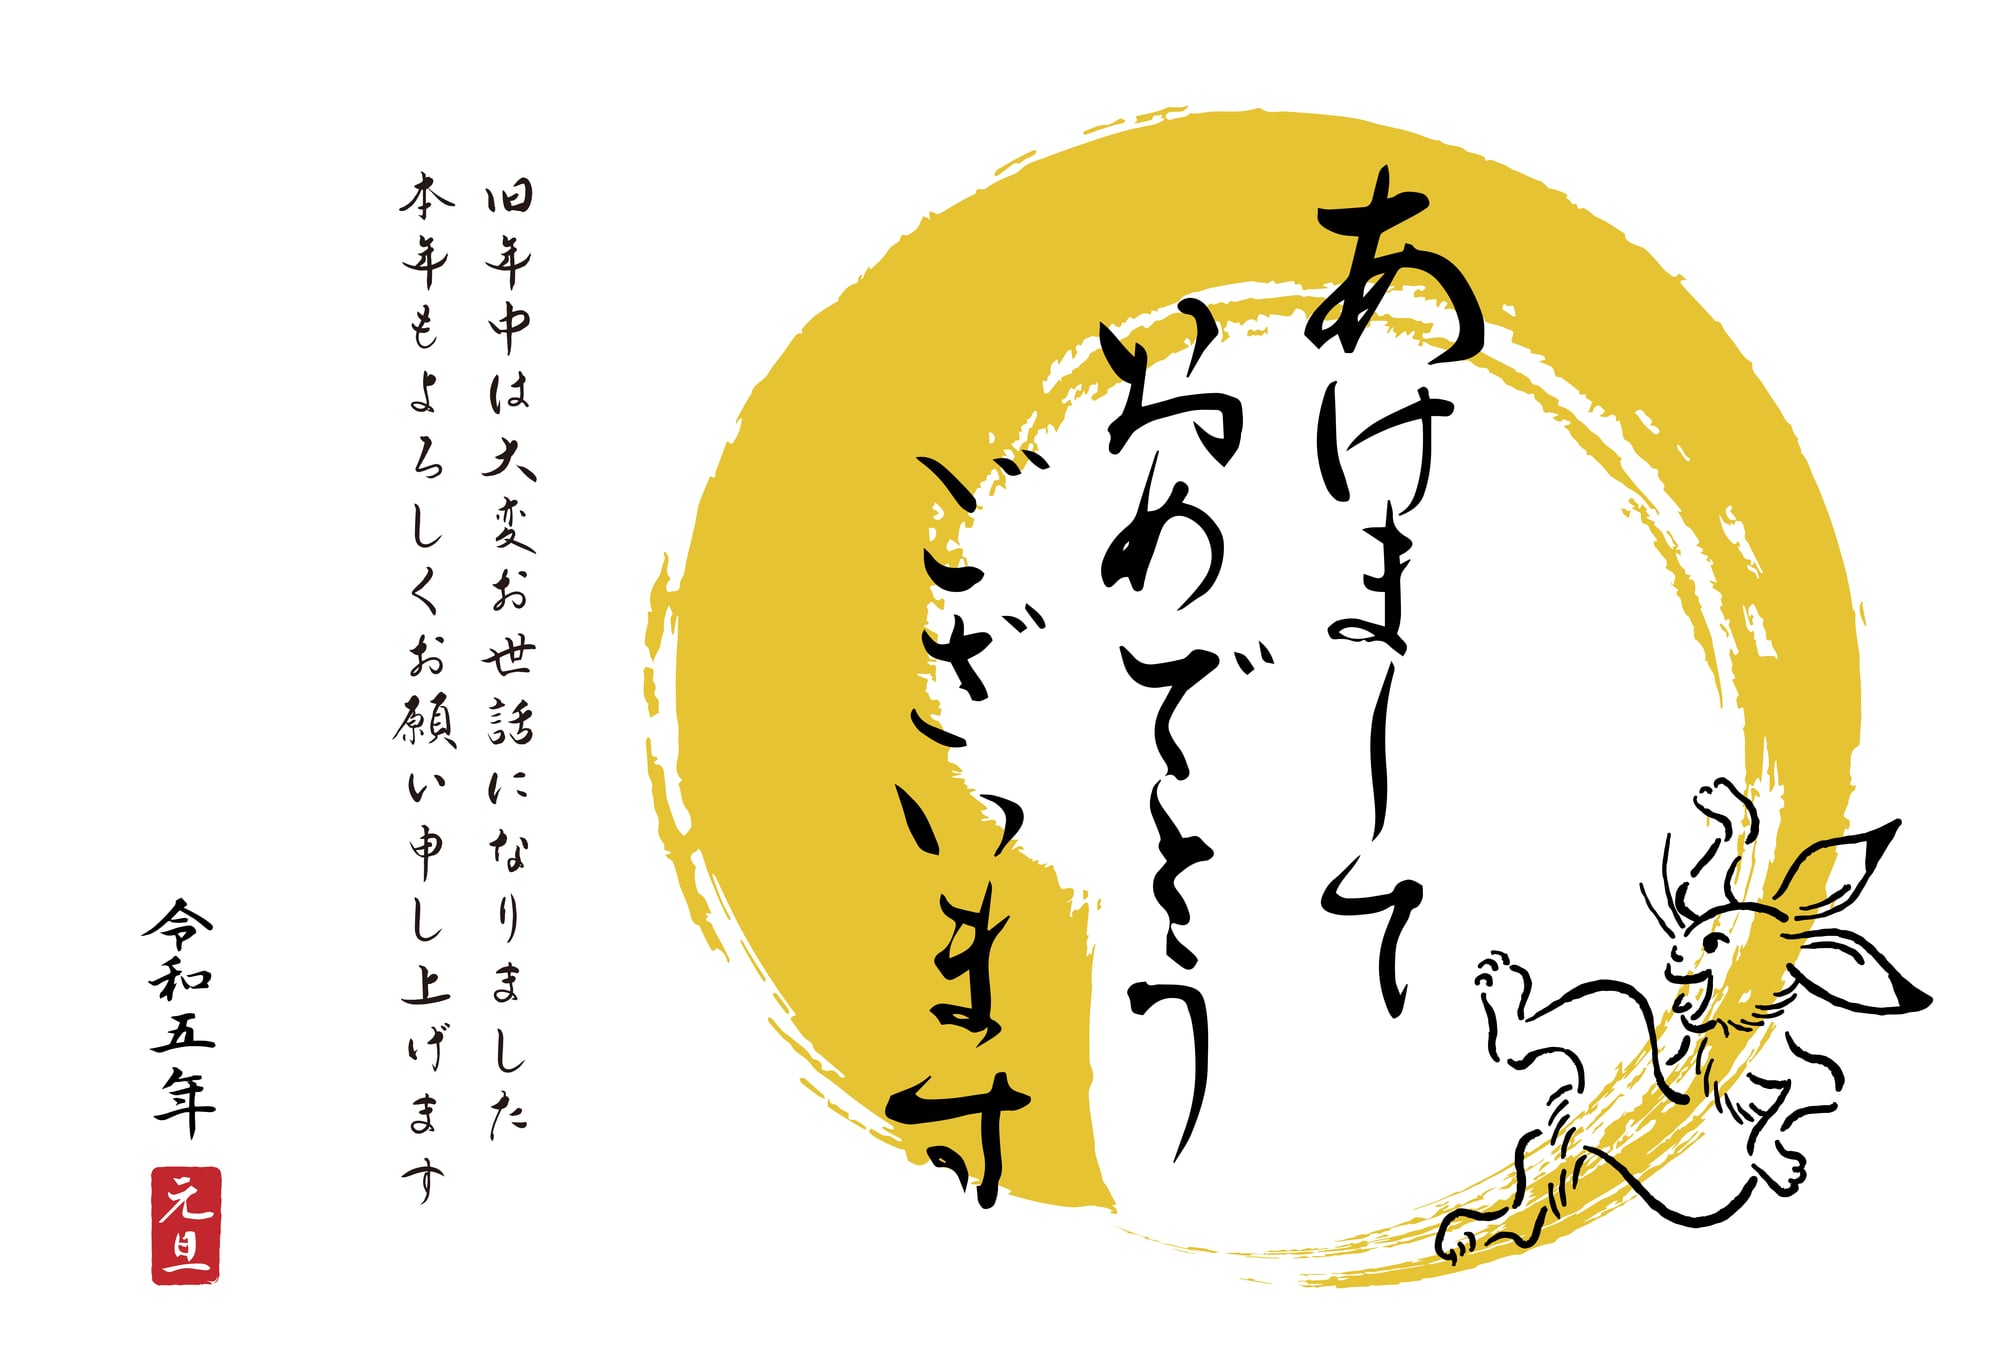 あけまして
おめでとう
ございます
旧年中は大変お世話になりました
本年もよろしくお願い申し上げます
令和五年
元旦